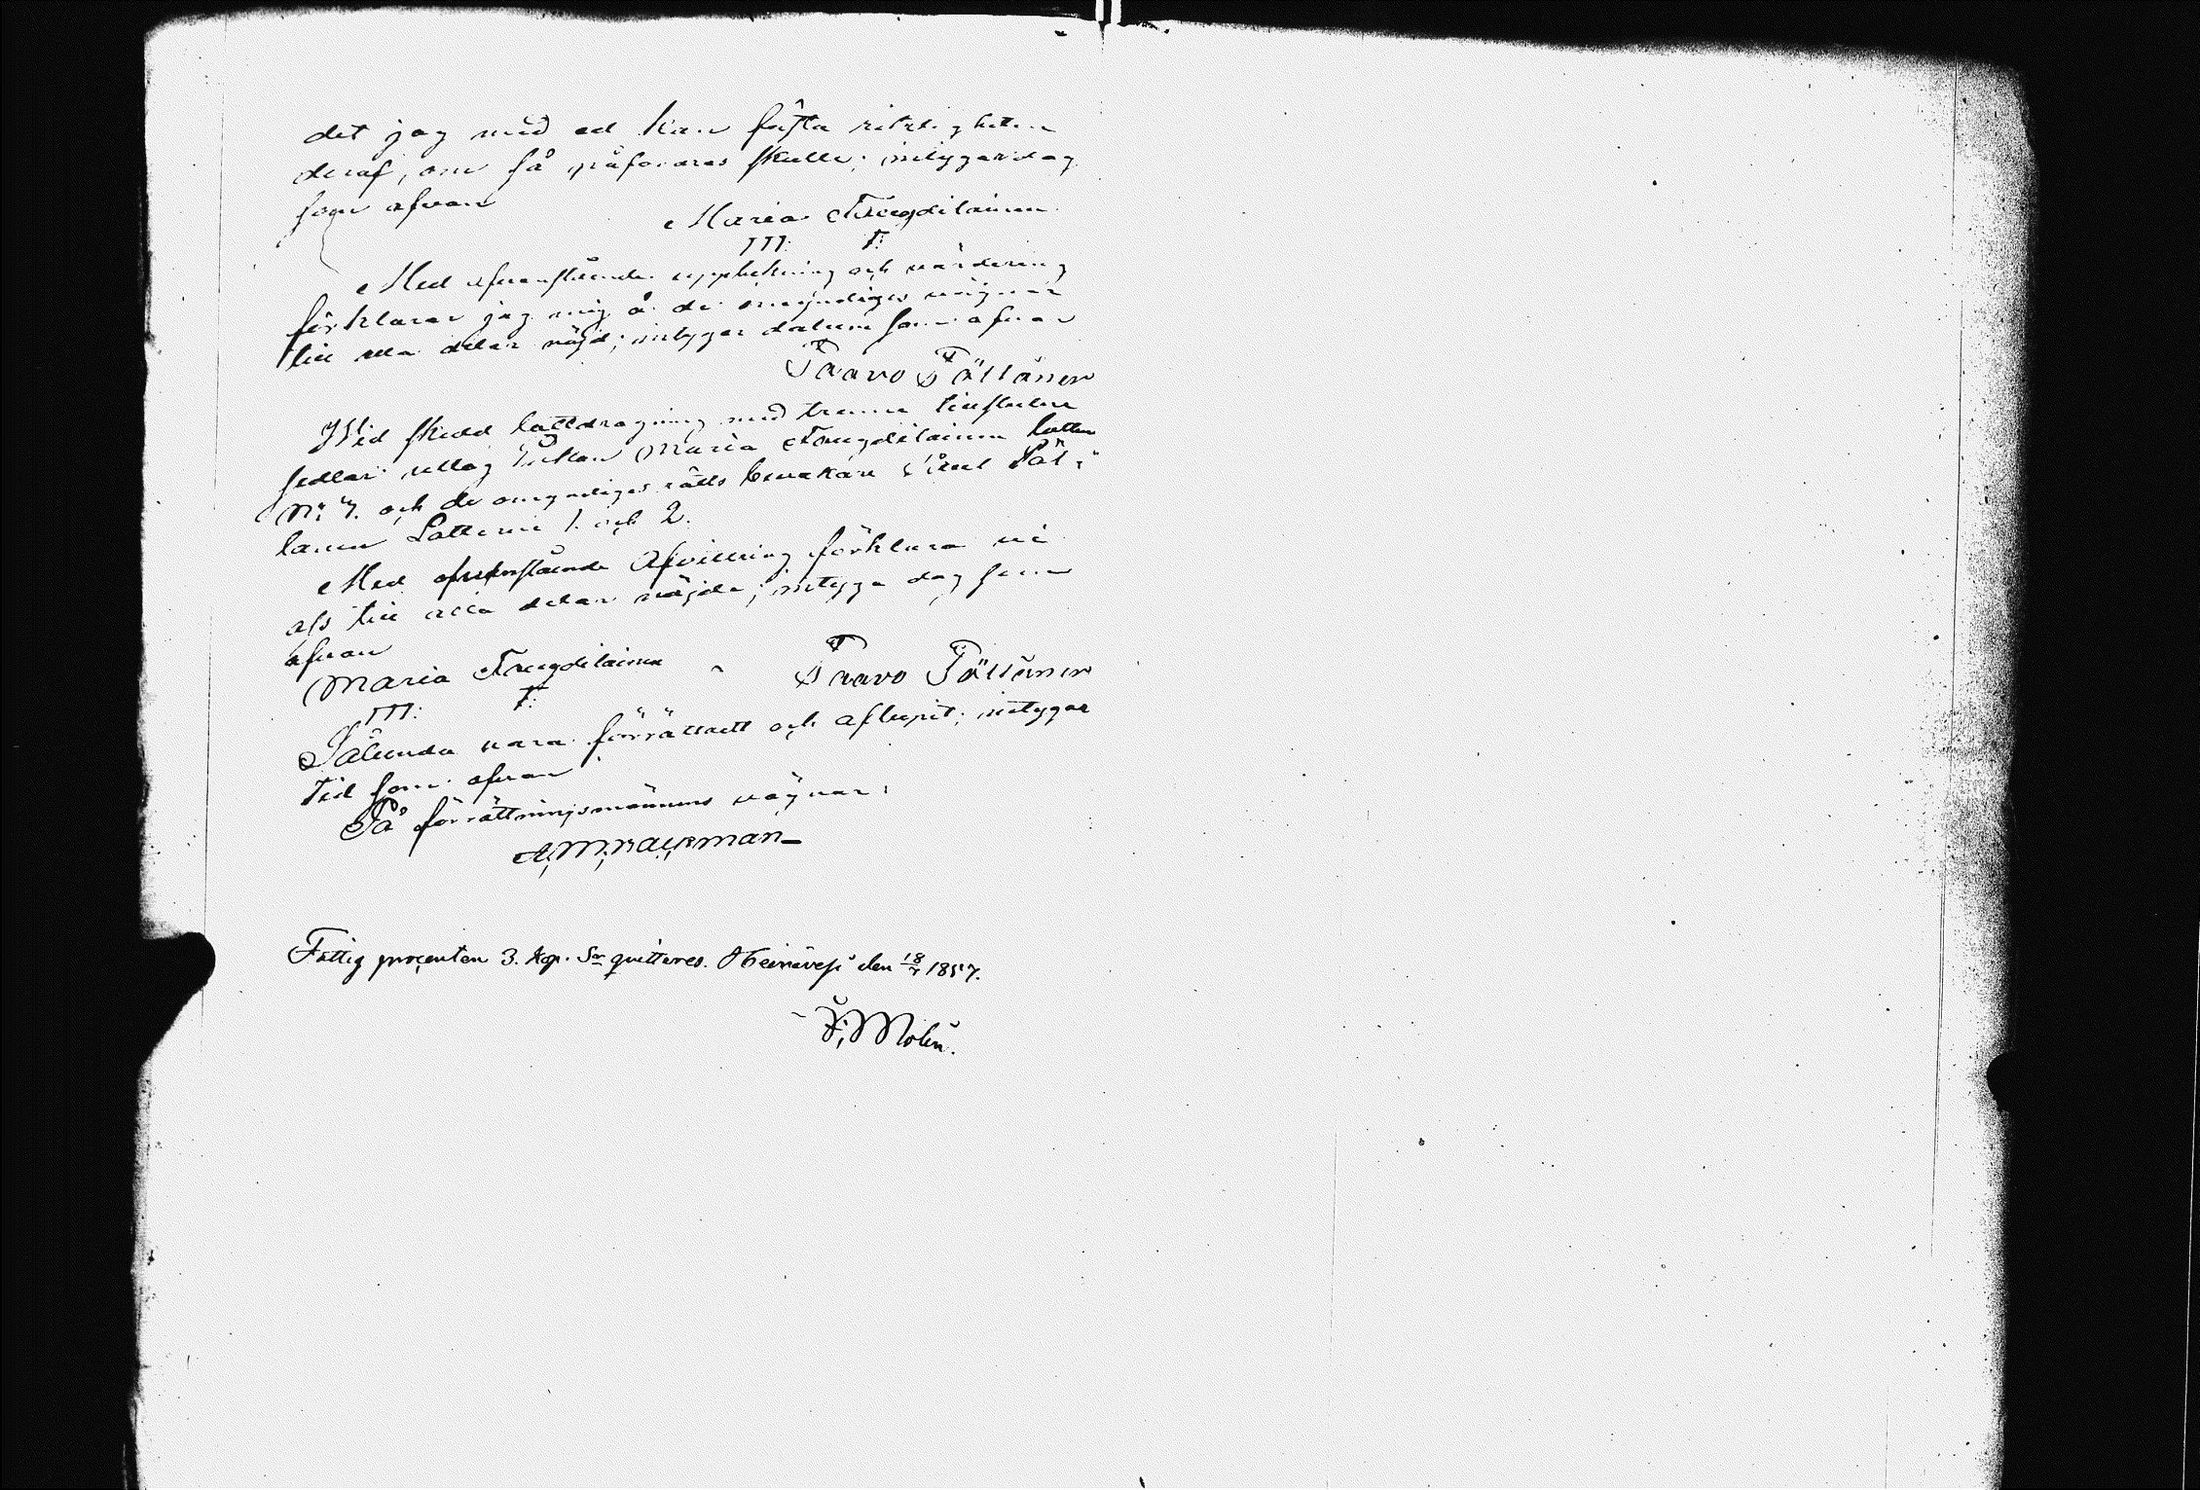 det jag med ed kan fästa riktigheten
deraf, om så påfordras skulle; intygar dag
som ofvan
Maria
M: T:
Med ofvanstående uppteckning och värdering
förklarar jag mig å de omyndiges vägnar
till alla delar nöjd; intygar datum som ofvan
Paavo Pöllänen
Wid skedd lottdragning med trenne
sedlar uttog Enkan Maria Lotten
N:o och de omyndiges rätts bevakare Pål Pöl-
länen Lotterne 1. och 2.
Med ofvanstående Afvittring förklara vi
oss till alla delar nöjde; intyga dag som
ofvan
Maria
Paavo Pöllänen
M: T:
Sålunda vara förrättadt och aflupit; intygar
tid som ofvan
På förrättningsmännens vägnar:
A, M,
Fattig procenten 3. kop. Sr quitteras. Heinävesi den 18/7 1857.
Molin.